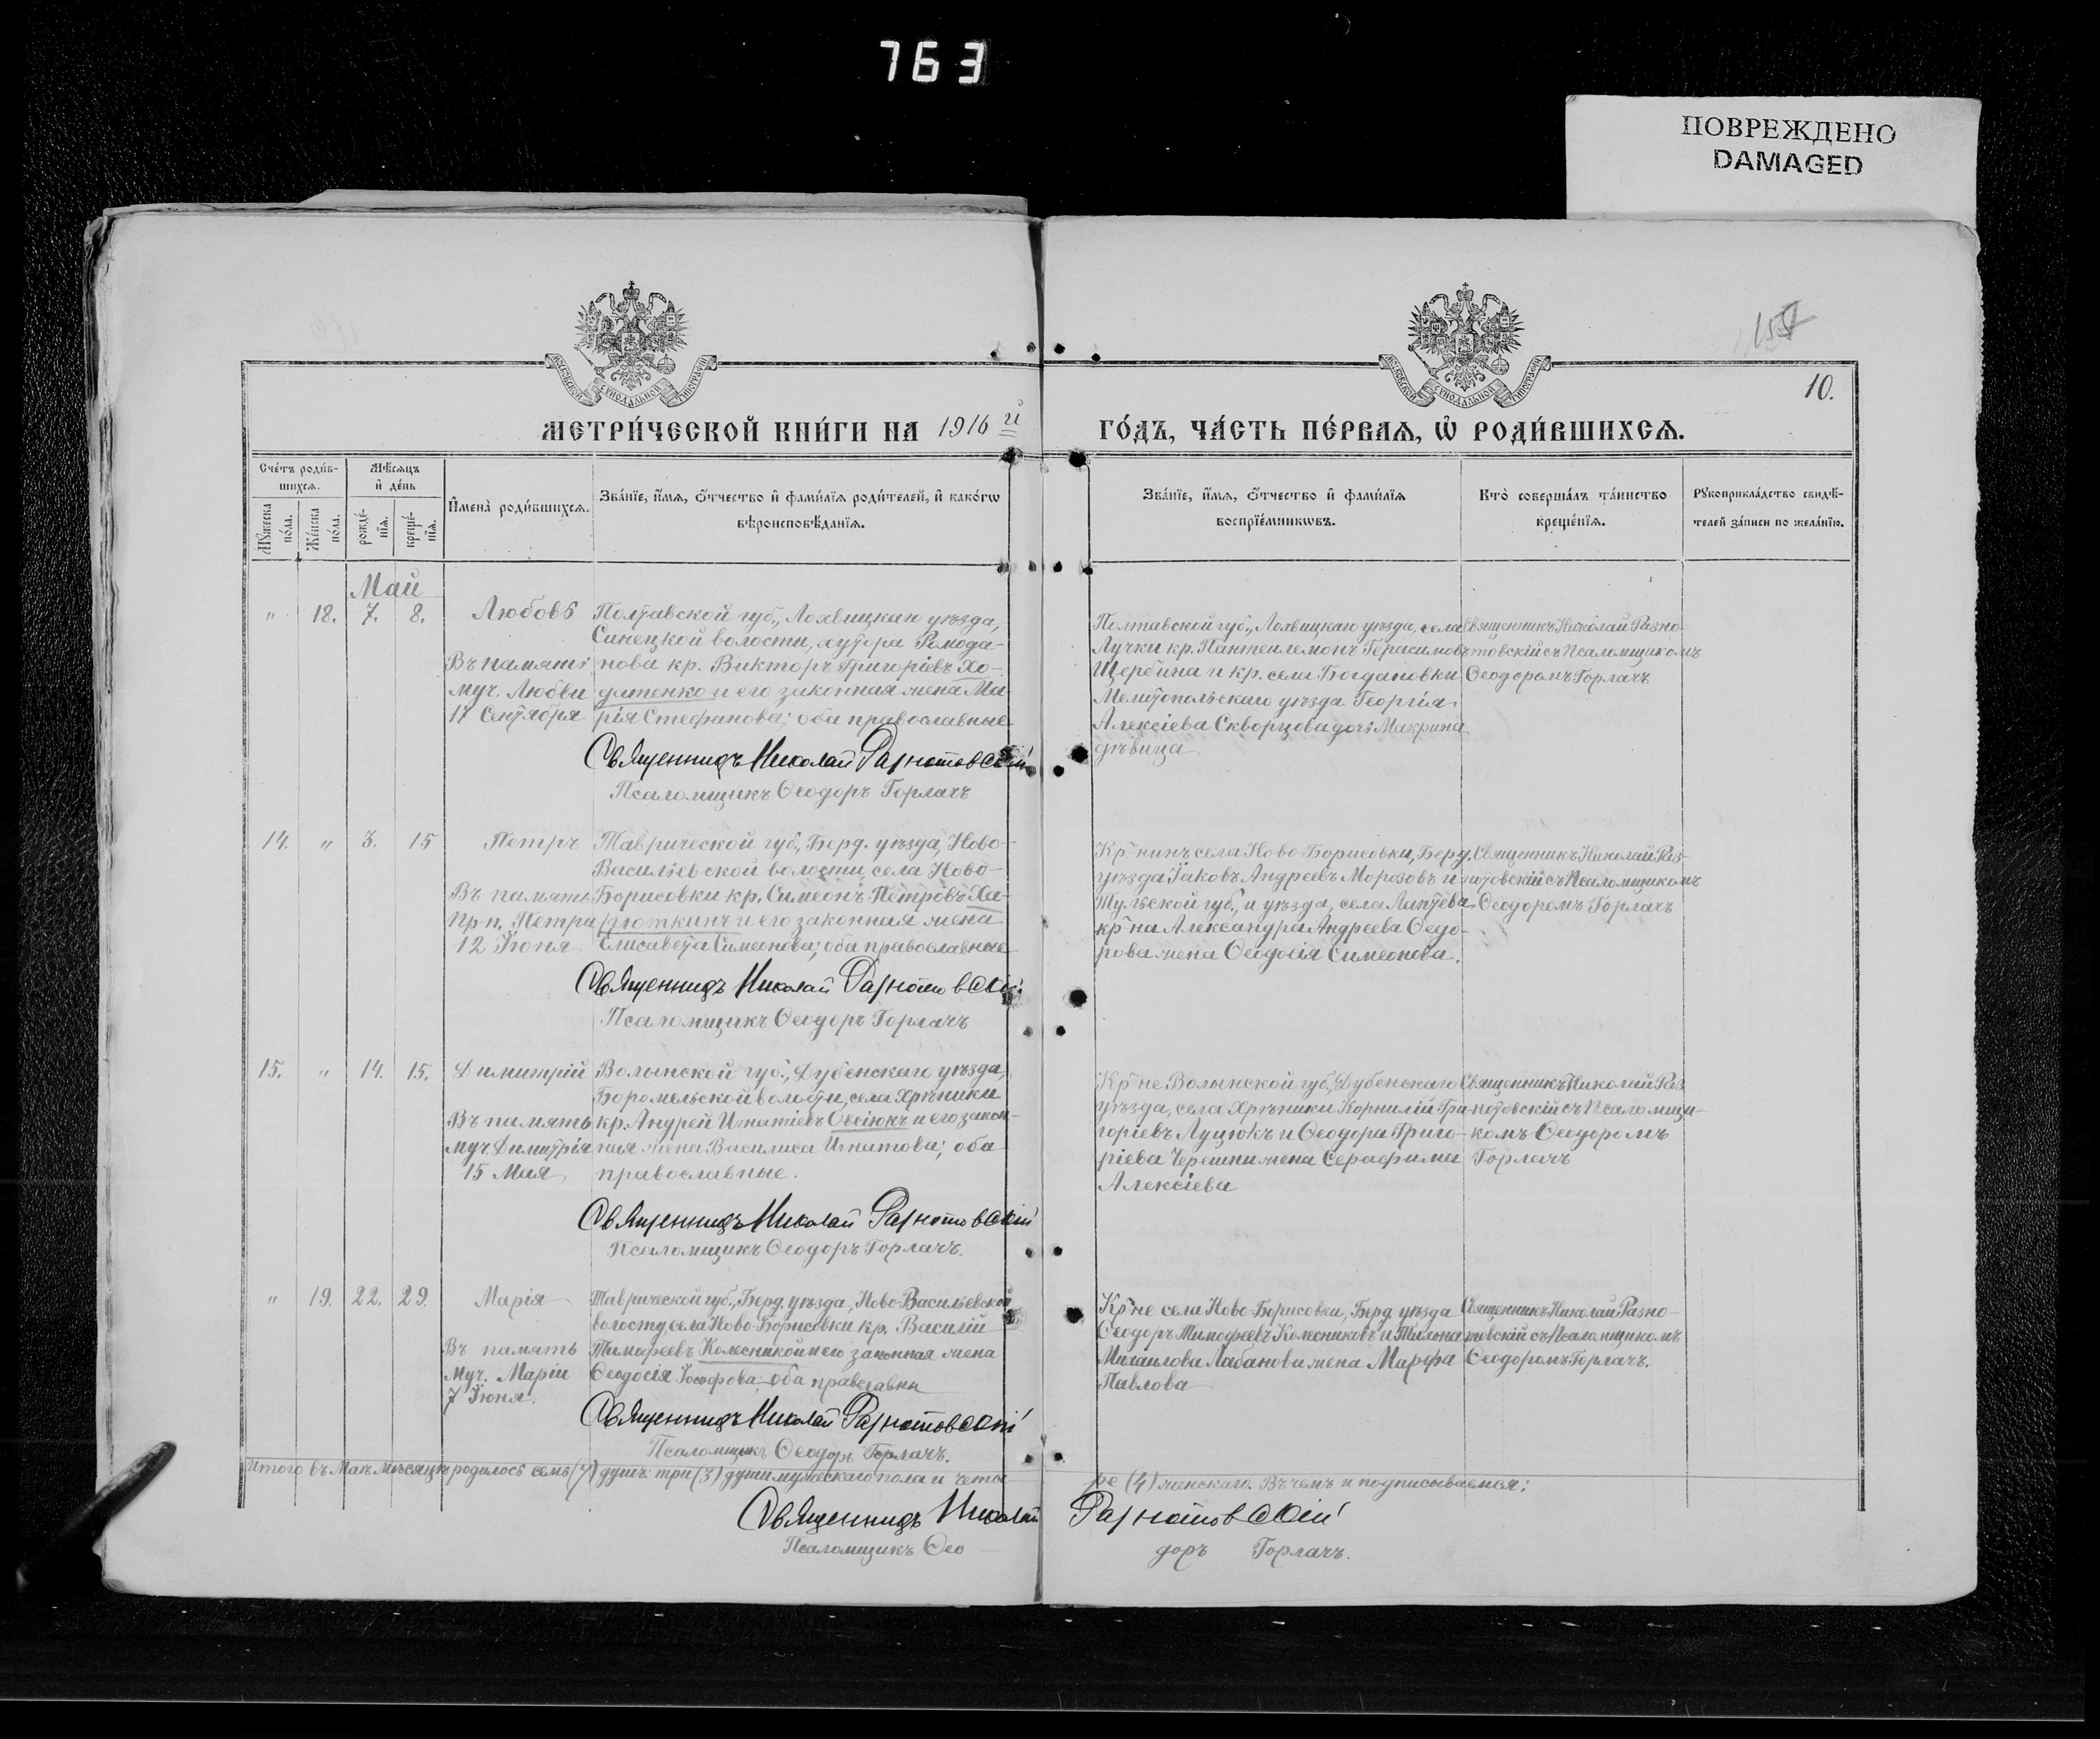 763
ПОВРЕЖДЕНО
DAMAGED
155
10.
МОСКОВСКОЙ СѴНОДАЛЬНОЙ ТИПОГРАФІИ
МОСКОВСКОЙ СѴНОДАЛЬНОЙ ТИПОГРАФІИ
МЕТРИ́ЧЕСКОЙ КНИ́ГИ НА 1916 й
ГО́ДЪ, ЧА́СТЬ ПЕ́РВАѦ, Ѡ҆ РОДИ́ВШИХСѦ.
Сче́тъ роди́в-
шихсѧ.
Мѣ́сѧцъ
и҆ де́нь
Мꙋ́жеска
по́ла.
Же́нска
по́ла.
рожде́-
нїѧ.
креще́-
нїѧ.
И҆мена̀ роди́вшихсѧ.
Зва́нїе, и҆́мѧ, ѻ҆́тчество и҆ фами́лїѧ роди́телей, и҆ како́гѡ
вѣроисповѣ́данїѧ.
Зва́нїе, и҆́мѧ, ѻ҆́тчество и҆ фами́лїѧ
воспрїе́мникѡвъ.
Кто̀ соверша́лъ та́инство
креще́нїѧ.
Рꙋкоприкла́дство свидѣ́-
телей за́писи по жела́нїю.
Май
" 18. 7. 8. Любовь
Въ память
муч. Любви
17 Сентября
Полтавской губ., Лохвицкаго уѣзда,
Синецкой волости, хутора Ромода-
нова кр. Викторъ Григоріевъ Хо-
датенко и его законная жена Ма-
рія Стефанова; оба православные
Священникъ Николай Разнотовскій
Псаломщикъ Ѳеодоръ Горлачъ
Полтавской губ., Лохвицкаго уѣзда, села
Лучки кр. Пантеилемонъ Герасимовъ
Щербина и кр. села Богдановки
Мелитопольскаго уѣзда Георгія
Алексіева Скворцова дочь Макрина
дѣвица
Священникъ Николай Разно-
товскій съ Псаломщикомъ
Ѳеодоромъ Горлачъ
14. " 3. 15 Петръ
Въ память
Прп. Петра
12 Іюня
Таврической губ., Берд. уѣзда, Ново-
Васильевской волости, села Ново-
Борисовки кр. Симеонъ Петровъ Ха-
рюткинъ и его законная жена
Елисавета Симеонова; оба православные
Священникъ Николай Разнотовскій
Псаломщикъ Ѳеодоръ Горлачъ
Кр-нинъ села Ново-Борисовки, Берд.
уѣзда Іаковъ Андреевъ Морозовъ и
Тульской губ., и уѣзда, села Лаптева
кр-на Александра Андреева Ѳедо-
рова жена Ѳеодосія Симеонова.
Священникъ Николай Раз-
нотовскій съ Псаломщикомъ
Ѳеодоромъ Горлачъ
15. " 14. 15. Димитрій
Въ память
муч. Димитрія
15 Мая
Волынской губ., Дубенскаго уѣзда,
Боромельской волости, села Хрѣники
кр. Андрей Игнатіевъ Овсіюкъ и его закон-
ная жена Василиса Игнатова; оба
православные.
Священникъ Николай Разнотовскій
Псаломщикъ Ѳеодоръ Горлачъ.
Кр-не Волынской губ., Дубенскаго
уѣзда, села Хрѣники Корнилій Гри-
горіевъ Луцюкъ и Ѳеодора Григо-
ріева Черешни жена Серафима
Алексіева
Священникъ Николай Раз-
нотовскій съ Псаломщи-
комъ Ѳеодоромъ
Горлачъ
" 19. 22. 29. Марія
Въ память
Муч. Маріи
7 Іюня.
Таврической губ., Берд. уѣзда, Ново-Васильевской
волости, села Ново-Борисовки кр. Василій
Тимофеевъ Колесников и его законная жена
Ѳеодосія Іосифова; оба православны
Священникъ Николай Разнотовскій
Псаломщикъ Ѳеодоръ Горлачъ.
Кр-не села Ново-Борисовки, Берд. уѣзда
Ѳеодоръ Тимофеевъ Колесниковъ и Тихона
Михаилова Лабанова жена Марфа
Павлова
Священникъ Николай Разно-
товскій съ Псаломщикомъ
Ѳеодоромъ Горлачъ.
Итого въ Маѣ Мѣсяцѣ родилось семь (7) душъ: три (3) души мужескаго пола и четы-
ре (4) женскаго. Въ чемъ и подписываемся:
Священникъ Николай Разнотовскій
Псаломщикъ Ѳео доръ Горлачъ.